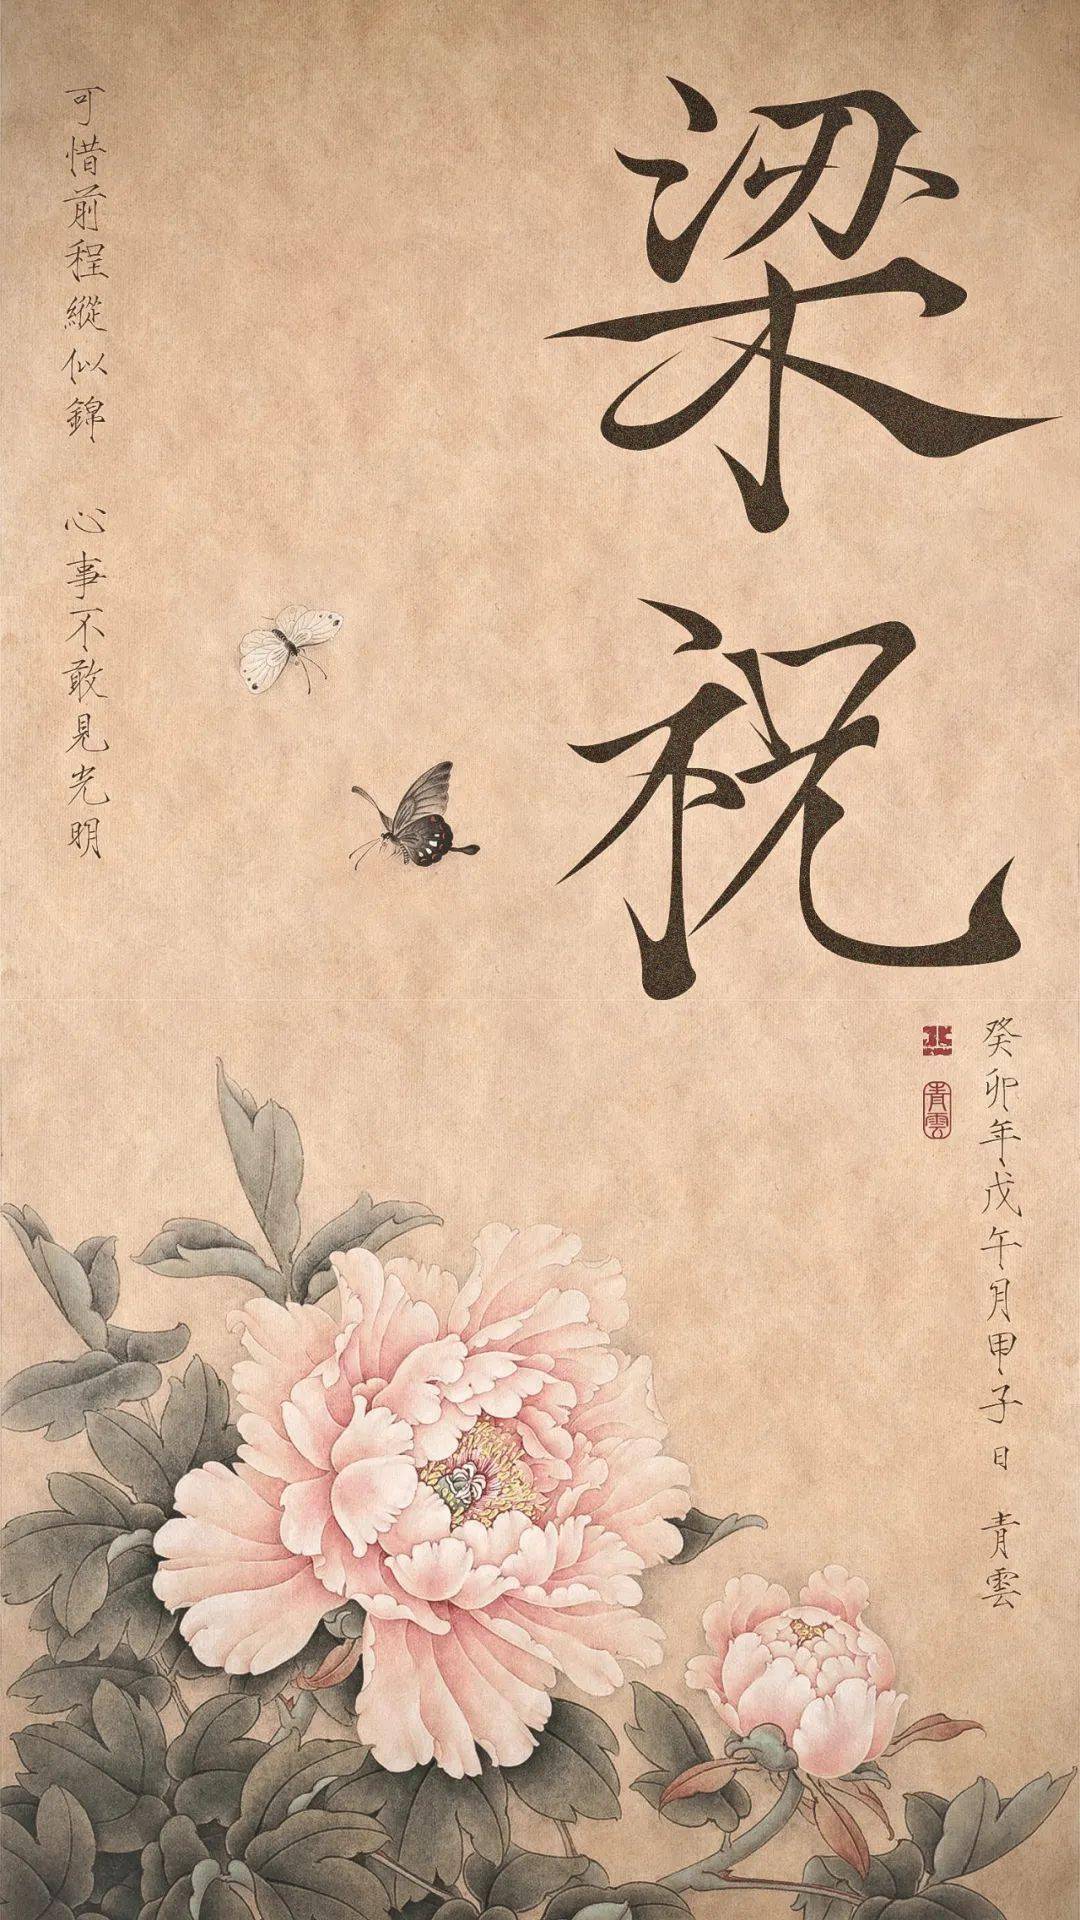 梁祝
癸卯年戊午月甲子日 青雲
青雲
可惜前程縱似錦 心事不敢見光明